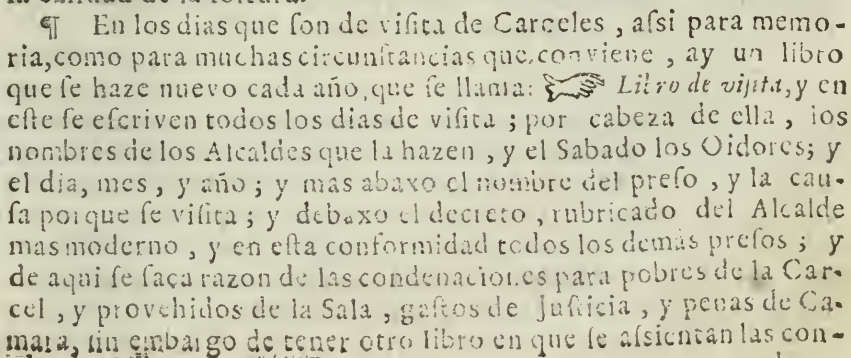 ¶ En los dias que son de visita de Carceles , assi para memo-
ria,como para muchas circunstancias que conviene , ay un libro
que se haze nuevo cada año,que se llama: ☞ Libro de visita,y en
este se escriven todos los dias de visita ; por cabeza de ella , los
nombres de los Alcaldes que la hazen , y el Sabado los Oidores; y
el dia, mes , y año ; y mas abaxo el nombre del preso , y la cau-
sa porque se visita ; y debaxo el decreto , rubricado del Alcalde
mas moderno , y en esta conformidad todos los demás presos ; y
de aqui se saça razon de las condenaciones para pobres de la Car-
cel , y provehidos de la Sala , gastos de Justicia , y penas de Ca-
mara, sin embargo de tener otro libro en que se assientan las con-